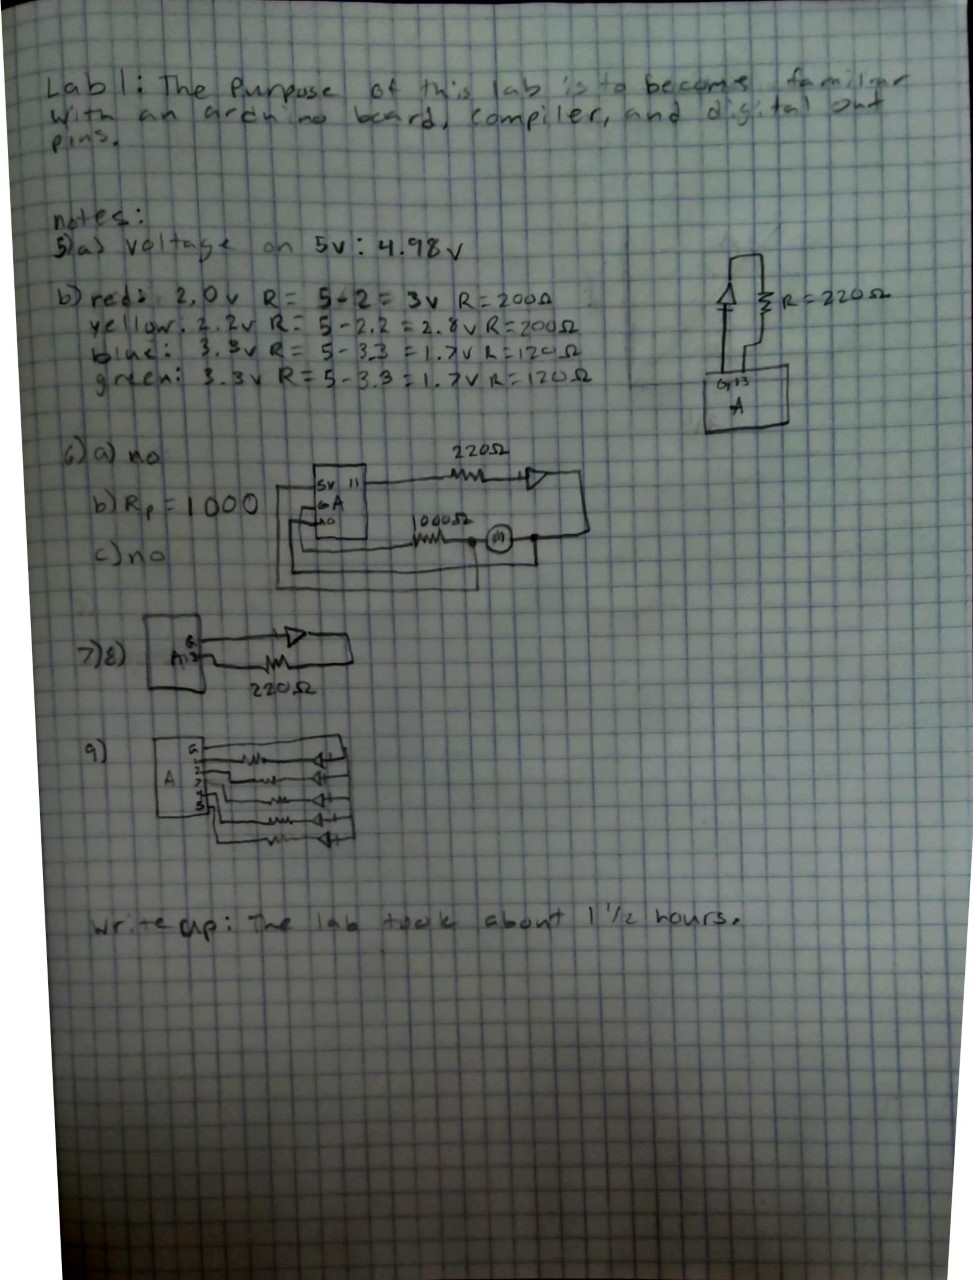 Lab 1: The Purpose of this lab is to become familiar
with an arduino board, compiler, and digital out
pins.
notes:
5)a) voltage on 5v: 4.98v
b) red: 2.0v R= 5-2= 3v R=200Ω
yellow: 2.2v R= 5-2.2=2.8v R=200Ω
blue: 3.3v R= 5-3.3=1.7v R=120Ω
green: 3.3v R=5-3.3=1.7v R=120Ω
R=220Ω
G 13
A
6) a) no
220Ω
5v 11
G A
A0
b) Rp=1000
1000Ω
m
c) no
7)8)
G
A 13
220Ω
9)
G
1
2
A
3
4
5
write up: The lab took about 1 1/2 hours.